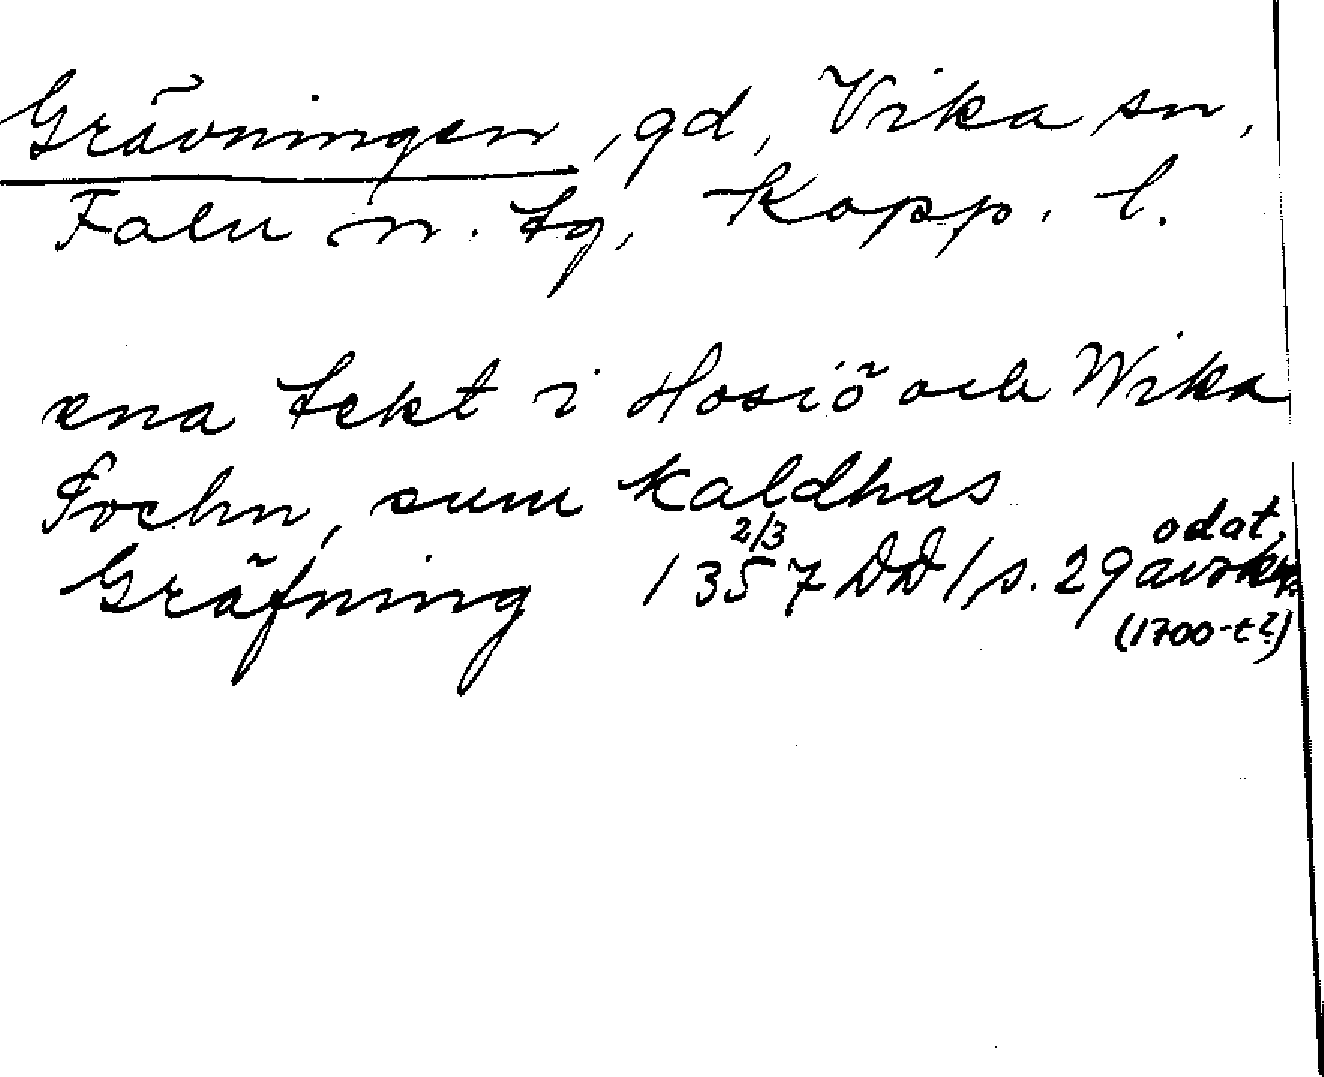 Grävningen, gd, Vika sn,
Falu n. tg, Kopp. l.
ena tekt i Hosiö och Wika
Sochn, sum kaldhas
Gräfning 2/3 1357 DD 1 s. 29 odat. avskr.
(1700-t?)